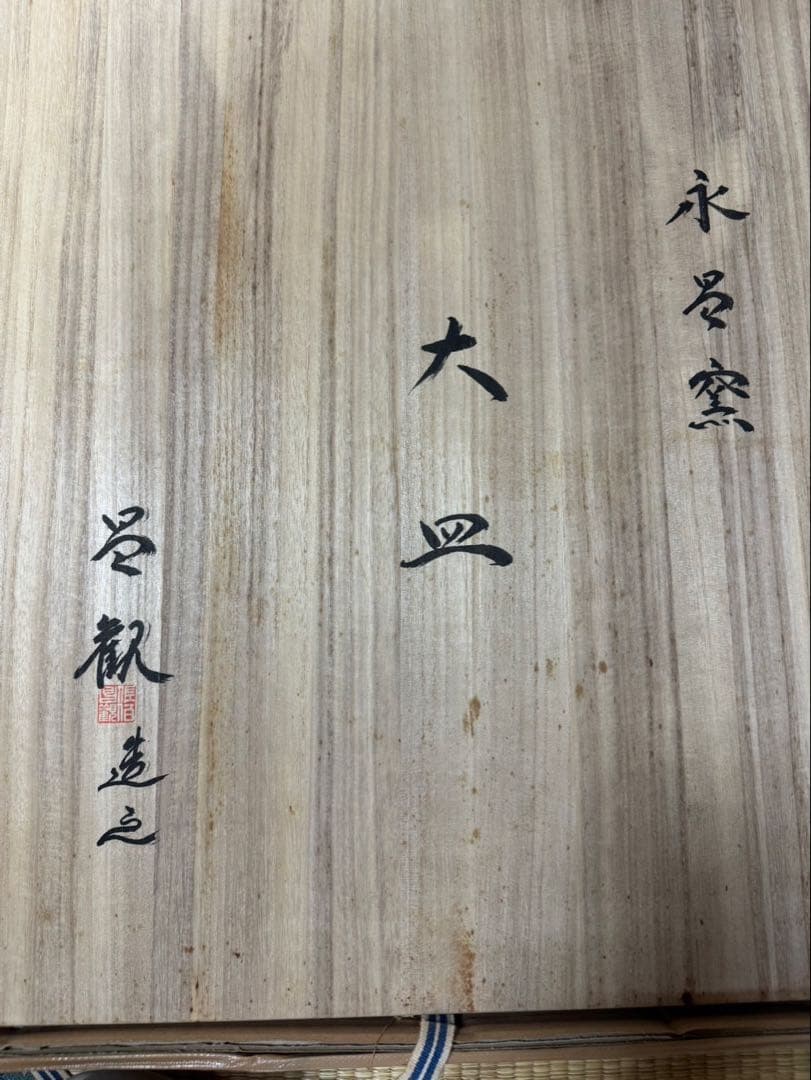 永昌窯
大皿
昌観造之